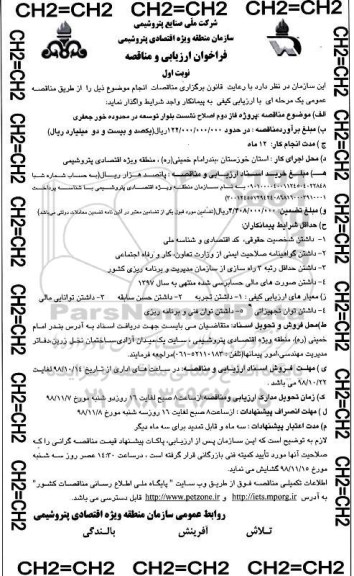 CH2=CH2 CH2=CH2 CH2=CH2 CH2=CH2
شرکت ملی صنایع پتروشیمی
سازمان منطقه ویژه اقتصادی پتروشیمی
فراخوان ارزیابی و مناقصه
نوبت اول
این سازمان در نظر دارد با رعایت قانون برگزاری مناقصات انجام موضوع ذیل را از طریق مناقصه
عمومی یک مرحله ای با ارزیابی کیفی به پیمانکار واجد شرایط واگذار نماید:
الف) موضوع مناقصه: پروژه فاز دوم اصلاح نشست بلوار توسعه در محدوده خور جعفری
ب) مبلغ برآورد مناقصه: در حدود ۱۲۲/۰۰۰/۰۰۰/۰۰۰ ریال(یکصد و بیست و دو میلیارد ریال)
ج) مدت انجام کار: ۱۲ ماه
د) محل اجرای کار: استان خوزستان -بندرامام خمینی(ره)، منطقه ویژه اقتصادی پتروشیمی
هـ) مبلغ خرید اسناد ارزیابی و مناقصه: پانصد هزار ریال(به حساب شماره شبا
بنام سازمان منطقه ویژه اقتصادی پتروشیمی با شناسه پرداخت
و) مبلغ تضمین: ۴/۳۰۸/۰۰۰/۰۰۰ ریال(تضامین مورد قبول یکی از تضامین معتبر در آئین نامه تضمین معاملات دولتی می باشد)
ح) حداقل شرایط پیمانکاران:
۱- داشتن شخصیت حقوقی، کد اقتصادی و شناسه ملی
۲- داشتن گواهینامه صلاحیت ایمنی از وزارت تعاون، کار و رفاه اجتماعی
۳- داشتن حداقل رتبه ۳ راه سازی از سازمان مدیریت و برنامه ریزی کشور
۴- داشتن صورت های مالی حسابرسی شده منتهی به سال ۱۳۹۷
ز) معیار های ارزیابی کیفی: ۱- داشتن تجربه ۲- داشتن حسن سابقه ۳- داشتن توانایی مالی
۴- داشتن توان تجهیزاتی ۵- داشتن توان فنی و برنامه ریزی
ط) محل فروش و تحویل اسناد: متقاضیان می بایست جهت دریافت اسناد به آدرس بندر امام
خمینی (ره)، منطقه ویژه اقتصادی پتروشیمی، سایت یک، میدان آزادی، ساختمان نخل زرین، دفاتر
مدیریت مهندسی، امور پیمانها(تلفن:۵۲۱۱۰۱۸۳-۰۶۱)مراجعه فرمایند.
ی) مهلت فروش اسناد ارزیابی و مناقصه: در ساعت های اداری از تاریخ ۹۸/۱۰/۱۴ لغایت
۹۸/۱۰/۲۲ می باشد.
ک) زمان تحویل مدارک ارزیابی و مناقصه: از ساعت ۸ صبح لغایت ۱۶ روزدو شنبه مورخ ۹۸/۱۱/۷
ل) مهلت انصراف پیشنهادات: از ساعت ۸ صبح لغایت ۱۶ روزسه شنبه مورخ ۹۸/۱۱/۸
م) مدت اعتبار پیشنهادات: سه ماه و قابل تمدید برای سه ماه دیگر
لازم به توضیح است که این سازمان پس از ارزیابی، پاکات پیشنهاد قیمت مناقصه گرانی را که
صلاحیت آنها مورد تأیید کمیته فنی بازرگانی قرار گرفته است، درساعت ۱۴:۳۰ عصر روز سه شنبه
مورخ ۹۸/۱۱/۱۵ گشایش می نماید.
اطلاعات تکمیلی مناقصه فوق از طریق وب سایت " پایگاه ملی اطلاع رسانی مناقصات کشور"
به آدرس http://iets.mporg.ir و http://www.petzone.ir قابل دسترسی می باشد.
روابط عمومی سازمان منطقه ویژه اقتصادی پتروشیمی
تلاش آفرینش بالندگی
CH2=CH2 CH2=CH2 CH2=CH2 CH2=CH2